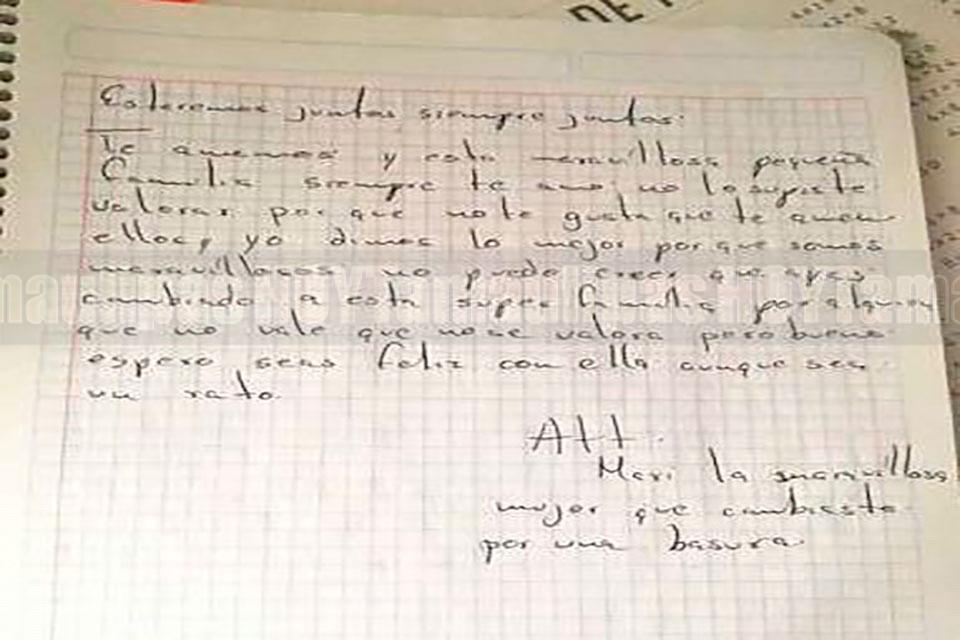 DE
Estaremos juntas siempre juntas.
Te amamos y esta maravillosa pequeña
familia siempre te amo, no lo supiste
valorar por que no te gusta que te amen
ellos, yo dimos lo mejor por que somos
maravillosos no puedo creer que ayas
cambiado a esta super familia por alguien
que no vale que no se valora pero bueno
espero seas feliz con ella aunque sea
un rato.
Att.
Mari la maravillosa
mujer que cambiaste
por una basura